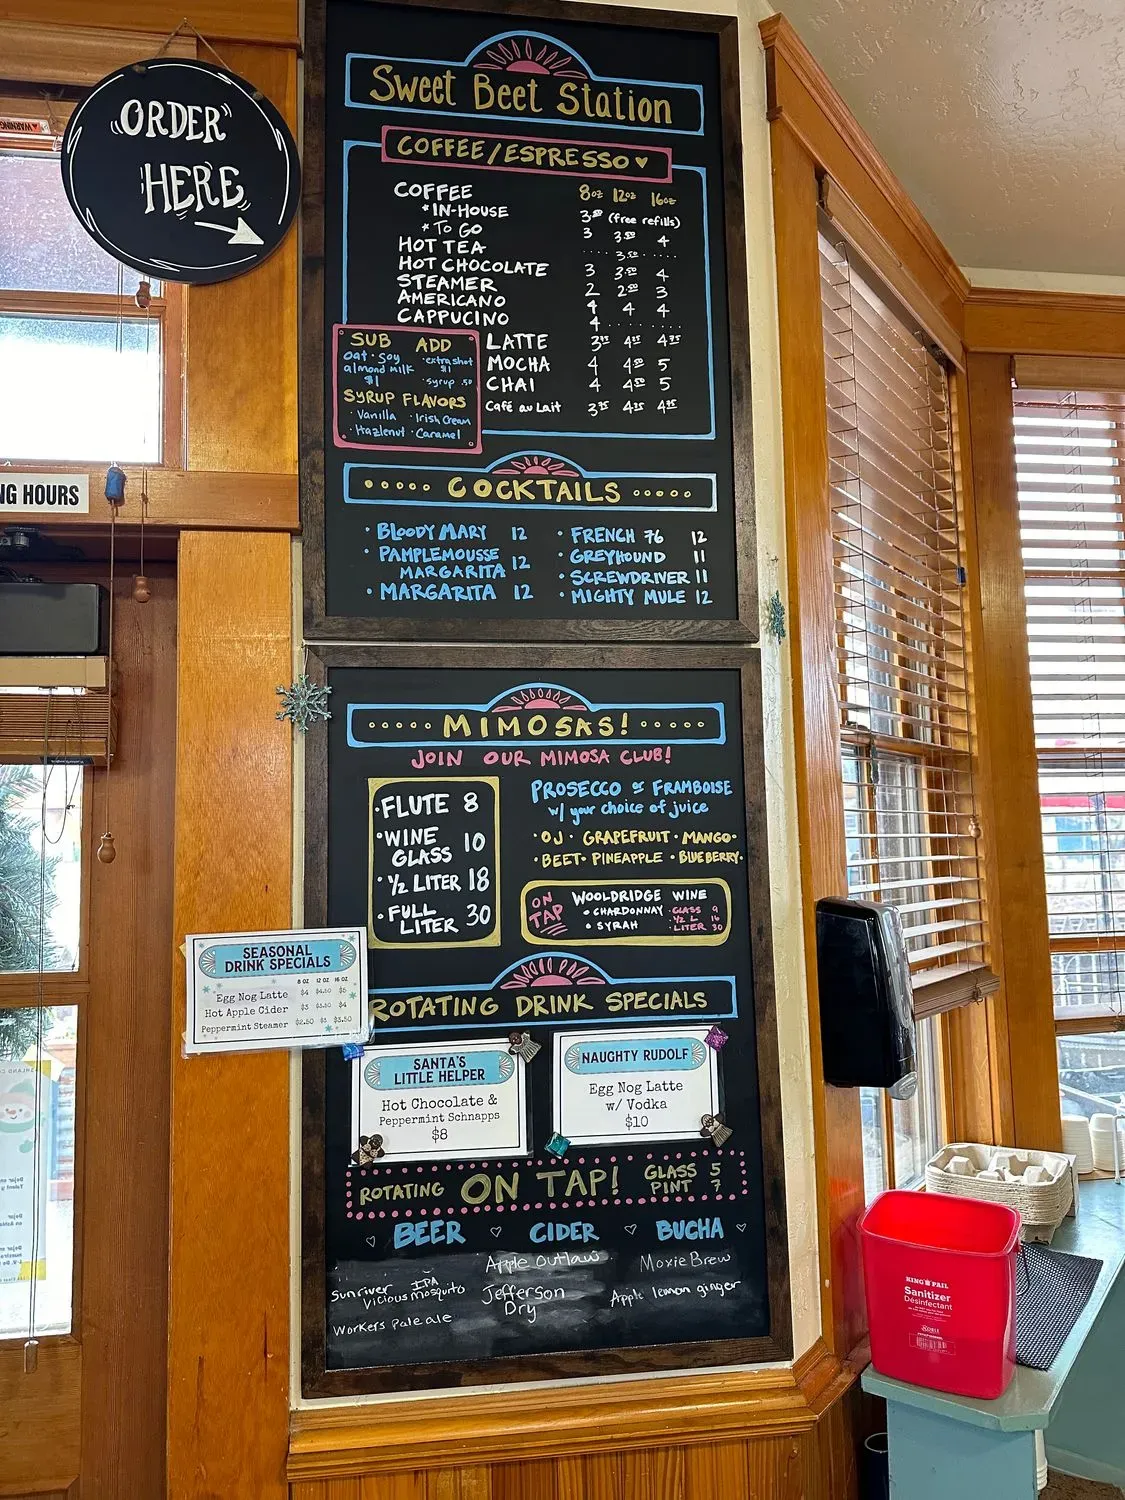 "ORDER"
HERE
WARNING
NG HOURS
Sweet Beet Station
COFFEE/ESPRESSO ♥
8oz 12oz 16oz
COFFEE
*IN-HOUSE 3⁵⁰ (free refills)
*TO GO 3 3⁵⁰ 4
HOT TEA ..... 3⁵⁰ .....
HOT CHOCOLATE 3 3⁵⁰ 4
STEAMER 2 2⁵⁰ 3
AMERICANO 4 4 4
CAPPUCINO 4 ........
LATTE 3⁷⁵ 4²⁵ 4⁷⁵
MOCHA 4 4⁵⁰ 5
CHAI 4 4⁵⁰ 5
Café au Lait 3⁷⁵ 4²⁵ 4⁷⁵
SUB
oat · Soy
almond milk
$1
ADD
·extra shot
$1
·syrup .50
SYRUP FLAVORS
·Vanilla ·Irish Cream
·Hazlenut ·Caramel
····· COCKTAILS ·····
· BLOODY MARY 12
· PAMPLEMOUSSE
MARGARITA 12
· MARGARITA 12
· FRENCH 76 12
· GREYHOUND 11
· SCREWDRIVER 11
· MIGHTY MULE 12
····· MIMOSAS! ·····
JOIN OUR MIMOSA CLUB!
·FLUTE 8
·WINE
GLASS 10
·½ LITER 18
·FULL
LITER 30
PROSECCO or FRAMBOISE
w/ your choice of juice
·OJ· GRAPEFRUIT ·MANGO·
·BEET· PINEAPPLE ·BLUEBERRY·
ON
TAP
WOOLDRIDGE WINE
• CHARDONNAY
• SYRAH
·GLASS 9
·½ L 16
·LITER 30
SEASONAL
DRINK SPECIALS
8 OZ 12 OZ 16 OZ
Egg Nog Latte $4 $4.50 $5
Hot Apple Cider $3 $3.50 $4
Peppermint Steamer $2.50 $3 $3.50
ROTATING DRINK SPECIALS
SANTA'S
LITTLE HELPER
Hot Chocolate &
Peppermint Schnapps
$8
NAUGHTY RUDOLF
Egg Nog Latte
w/ Vodka
$10
ROTATING ON TAP!
GLASS 5
PINT 7
♡ BEER ♡ CIDER ♡ BUCHA ♡
Sunriver IPA
Vicious mosquito
Workers Pale ale
Apple Outlaw
Jefferson
Dry
Moxie Brew
Apple lemon ginger
KING PAIL
Sanitizer
Désinfectant